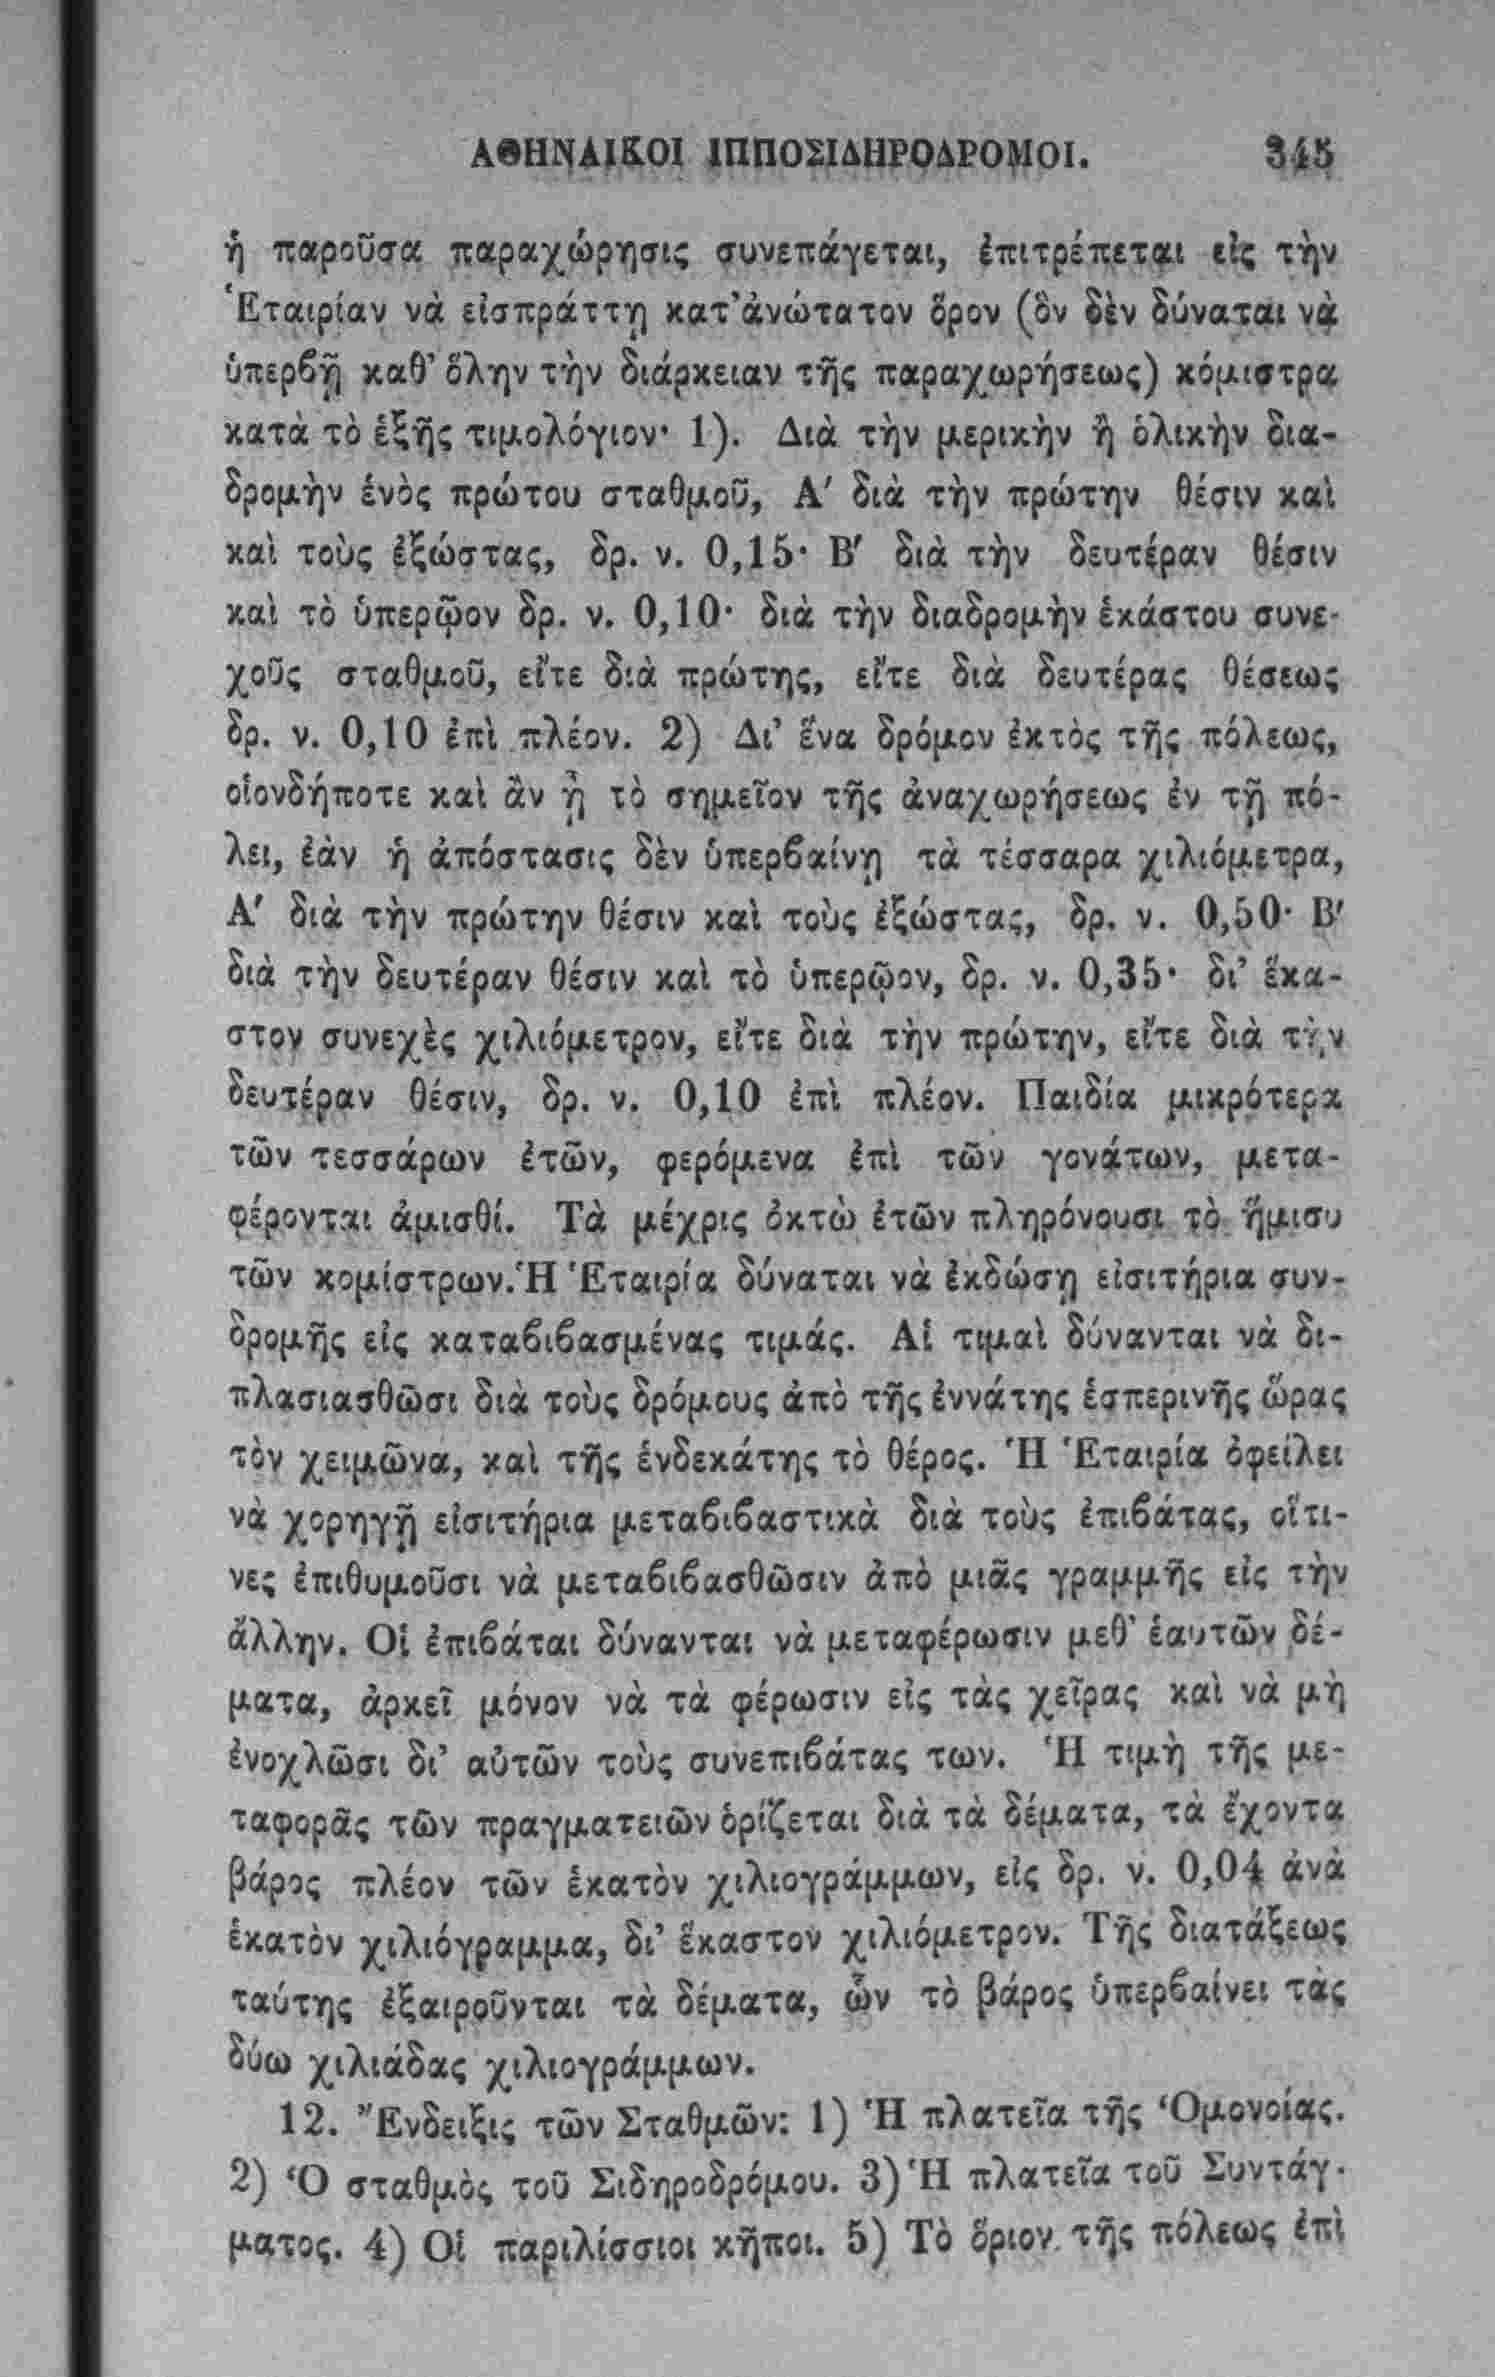 ΑΘΗΝΑΙΚΟΙ ΙΠΠΟΣΙΔΗΡΟΔΡΟΜΟΙ. 345
ἡ παροῦσα παραχώρησις συνεπάγεται, ἐπιτρέπεται εἰς τὴν
Ἑταιρίαν νὰ εἰσπράττῃ κατ’ἀνώτατον ὅρον (ὃν δὲν δύναται νὰ
ὑπερβῇ καθ’ ὅλην τὴν διάρκειαν τῆς παραχωρήσεως) κόμιστρα
κατὰ τὸ ἑξῆς τιμολόγιον· 1). Διὰ τὴν μερικὴν ἢ ὁλικὴν δια-
δρομὴν ἑνὸς πρώτου σταθμοῦ, Α′ διὰ τὴν πρώτην θέσιν καὶ
καὶ τοὺς ἐξώστας, δρ. ν. 0,15· Β′ διὰ τὴν δευτέραν θέσιν
καὶ τὸ ὑπερῷον δρ. ν. 0,10· διὰ τὴν διαδρομὴν ἑκάστου συνε-
χοῦς σταθμοῦ, εἴτε διὰ πρώτης, εἴτε διὰ δευτέρας θέσεως
δρ. ν. 0,10 ἐπὶ πλέον. 2) Δι’ ἕνα δρόμον ἐκτὸς τῆς πόλεως,
οἱονδήποτε καὶ ἂν ᾖ τὸ σημεῖον τῆς ἀναχωρήσεως ἐν τῇ πό-
λει, ἐὰν ἡ ἀπόστασις δὲν ὑπερβαίνῃ τὰ τέσσαρα χιλιόμετρα,
Α′ διὰ τὴν πρώτην θέσιν καὶ τοὺς ἐξώστας, δρ. ν. 0,50· Β′
διὰ τὴν δευτέραν θέσιν καὶ τὸ ὑπερῷον, δρ. ν. 0,35· δι’ ἕκα-
στον συνεχὲς χιλιόμετρον, εἴτε διὰ τὴν πρώτην, εἴτε διὰ τὴν
δευτέραν θέσιν, δρ. ν. 0,10 ἐπὶ πλέον. Παιδία μικρότερα
τῶν τεσσάρων ἐτῶν, φερόμενα ἐπὶ τῶν γονάτων, μετα-
φέρονται ἀμισθί. Τὰ μέχρις ὀκτὼ ἐτῶν πληρόνουσι τὸ ἥμισυ
τῶν κομίστρων. Ἡ Ἑταιρία δύναται νὰ ἐκδώσῃ εἰσιτήρια συν-
δρομῆς εἰς καταβιβασμένας τιμάς. Αἱ τιμαὶ δύνανται νὰ δι-
πλασιασθῶσι διὰ τοὺς δρόμους ἀπὸ τῆς ἐννάτης ἑσπερινῆς ὥρας
τὸν χειμῶνα, καὶ τῆς ἑνδεκάτης τὸ θέρος. Ἡ Ἑταιρία ὀφείλει
νὰ χορηγῇ εἰσιτήρια μεταβιβαστικὰ διὰ τοὺς ἐπιβάτας, οἵτι-
νες ἐπιθυμοῦσι νὰ μεταβιβασθῶσιν ἀπὸ μιᾶς γραμμῆς εἰς τὴν
ἄλλην. Οἱ ἐπιβάται δύνανται νὰ μεταφέρωσιν μεθ’ ἑαυτῶν δέ-
ματα, ἀρκεῖ μόνον νὰ τὰ φέρωσιν εἰς τὰς χεῖρας καὶ νὰ μὴ
ἐνοχλῶσι δι’ αὐτῶν τοὺς συνεπιβάτας των. Ἡ τιμὴ τῆς με-
ταφορᾶς τῶν πραγματειῶν ὁρίζεται διὰ τὰ δέματα, τὰ ἔχοντα
βάρος πλέον τῶν ἑκατὸν χιλιογράμμων, εἰς δρ. ν. 0,04 ἀνὰ
ἑκατὸν χιλιόγραμμα, δι’ ἕκαστον χιλιόμετρον. Τῆς διατάξεως
ταύτης ἐξαιροῦνται τὰ δέματα, ὧν τὸ βάρος ὑπερβαίνει τὰς
δύω χιλιάδας χιλιογράμμων.
12. Ἔνδειξις τῶν Σταθμῶν: 1) Ἡ πλατεῖα τῆς Ὁμονοίας.
2) Ὁ σταθμὸς τοῦ Σιδηροδρόμου. 3) Ἡ πλατεῖα τοῦ Συντάγ-
ματος. 4) Οἱ παριλίσσιοι κῆποι. 5) Τὸ ὅριον τῆς πόλεως ἐπὶ